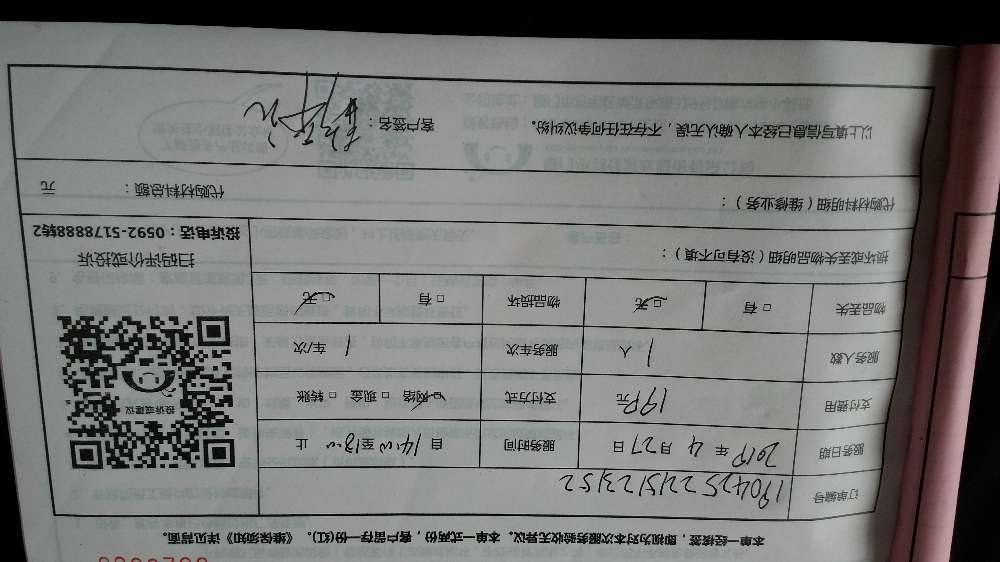 本单一经接签，即视为对本次服务验收无异议。本单一式两份，客户留存一份(红)。《维保须知》详见背面。
订单编号 1904252215123152
服务日期 2019 年 4 月 27 日 服务时间 自 14:00 至 18:00 止
支付费用 199元 支付方式 ☑网络 □现金 □转账
服务人数 1 人 服务车次 1 车/次
物品丢失 □有 ☑无 物品损坏 □有 ☑无
投诉或建议
扫码评价或投诉
投诉电话：0592-5178888转2
损坏或丢失物品明细（没有可不填）：
代购材料明细（维修业务）： 代购材料总额： 元
以上填写信息已经本人确认无误，不存在任何争议纠纷。 客户签名：